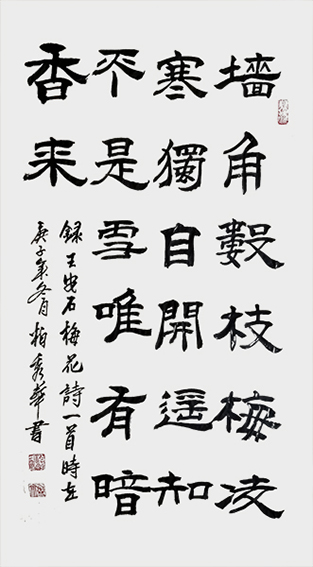 墻角數枝梅凌
寒獨自開遥知
不是雪唯有暗
香来
録王安石梅花詩一首時在
庚子年冬月柏秀華書